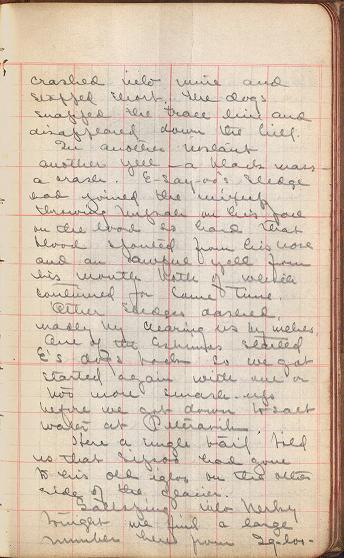 crashed into mine and
stopped short. The dogs
snapped the trace line and
disappeared down the hill.
In another instant
another yell — a black mass —
a crash. E-Say-oo's sledge
had joined the mixup
throwing on his face
on the wood so hard that
blood spouted from his nose
and an awful yell from
his mouth both of which
continued for some time.
Other sledges dashed
madly by clearing us by inches.
One of the Eskimos started
E's dogs back so we got
started again with one or
two more smash-ups
before we got down to salt
water at
Here a single trail told
us that had gone
to his old igloo on the other
side of the glacier.
Galloping into Nerky
tonight we find a large
number here from Ig-loo-